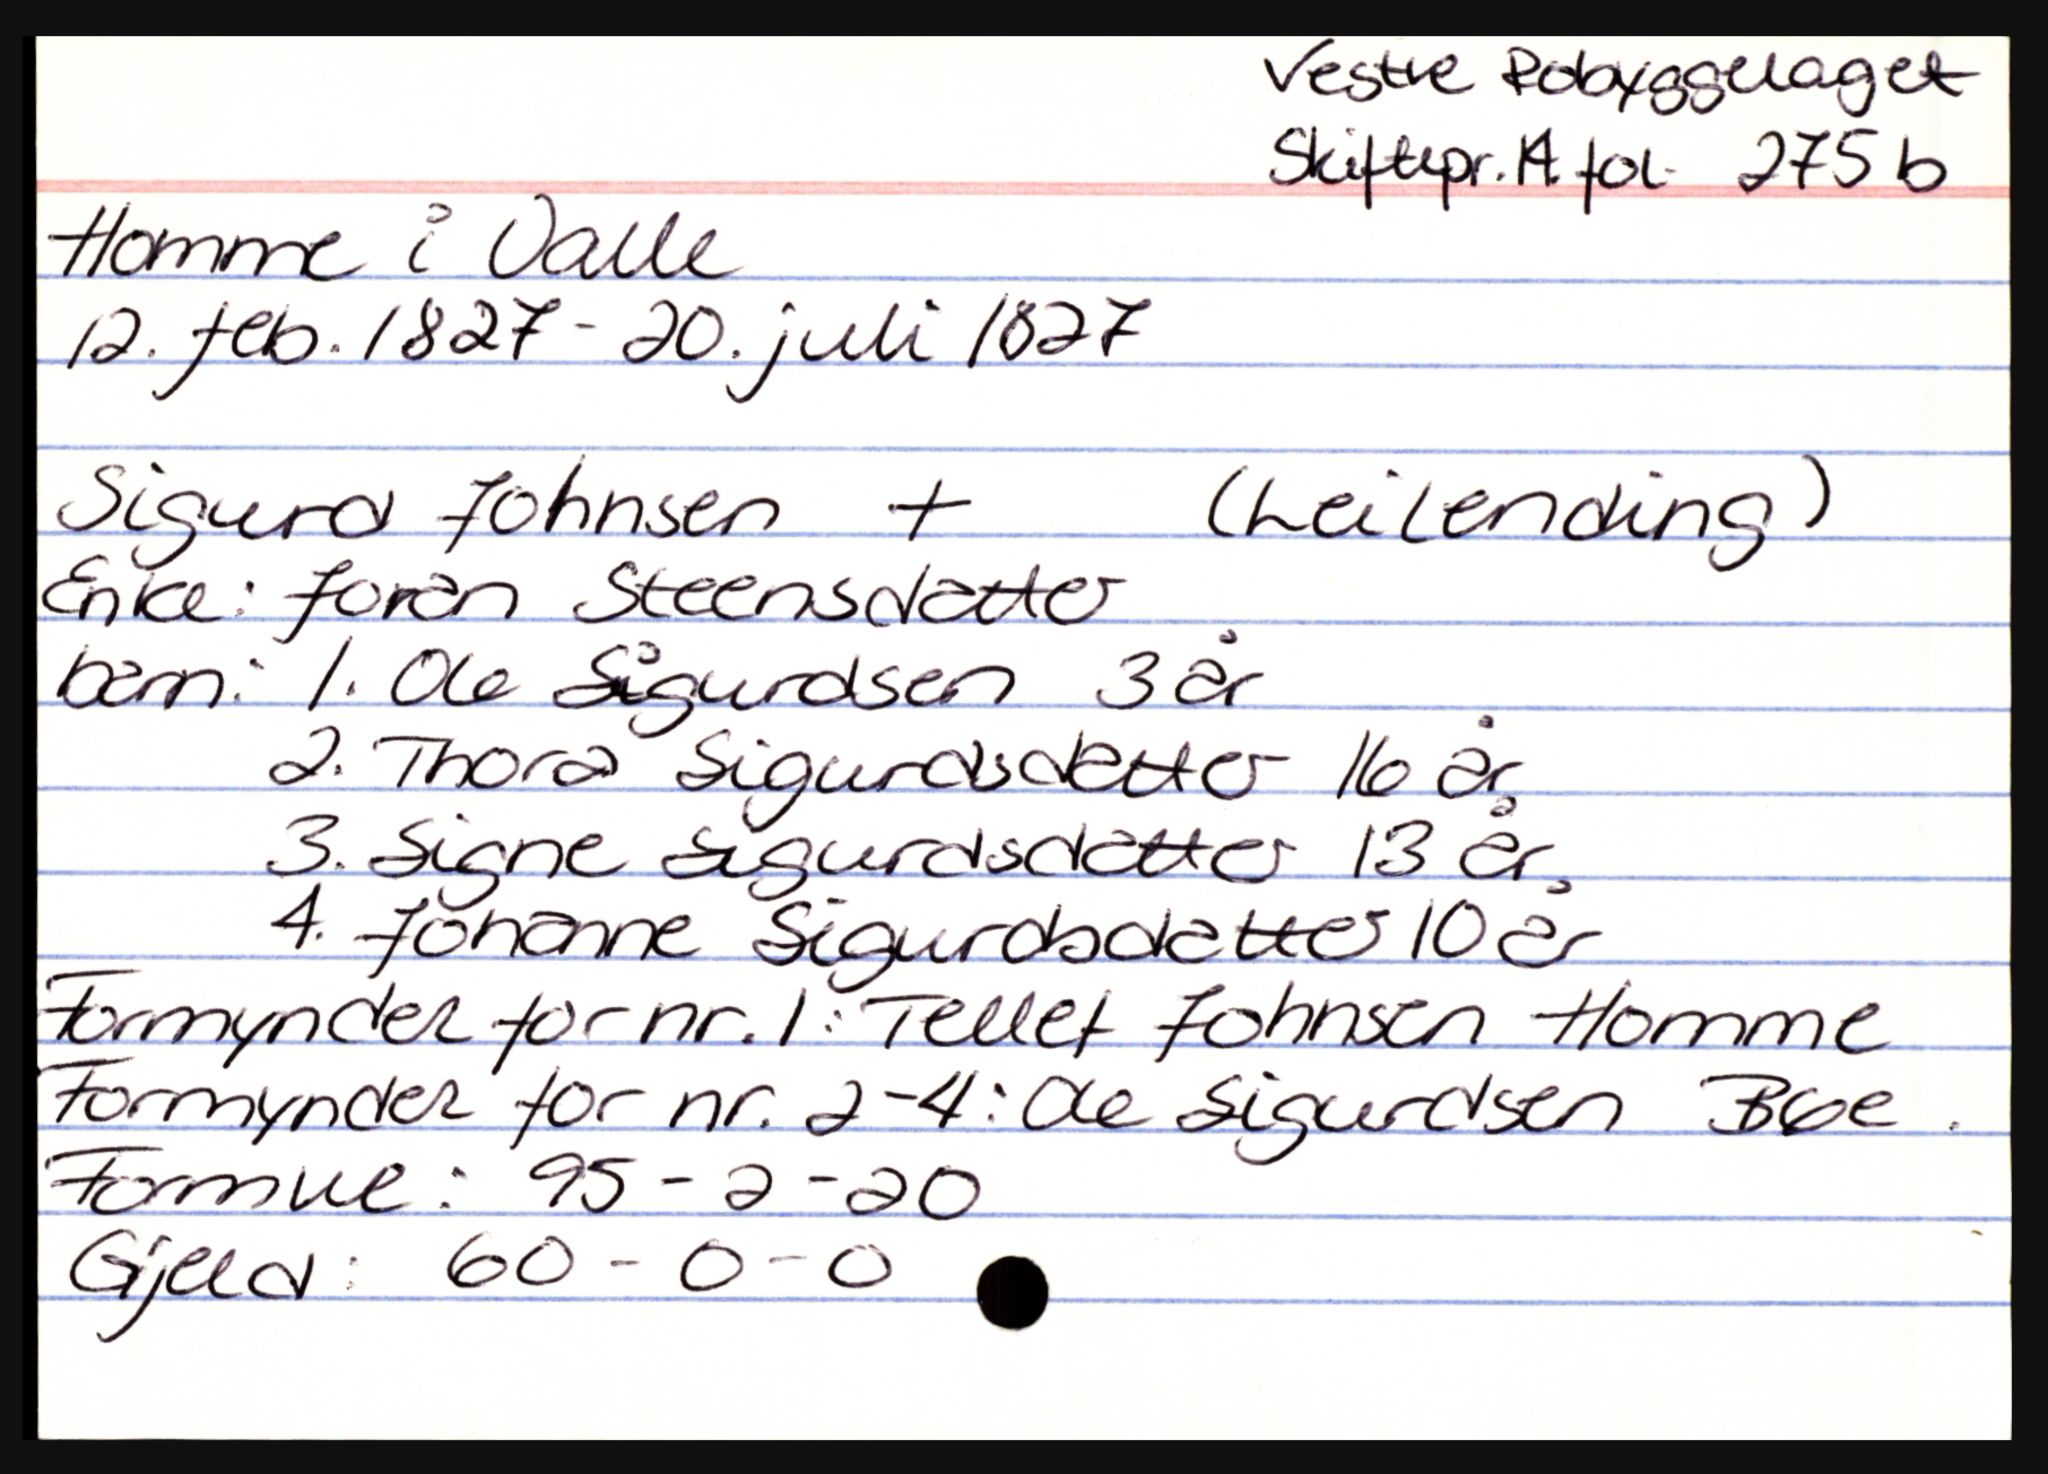 Vestre Robyggelaget
Skiftepr. 14 fol. 275 b
Homme i Valle
12. feb. 1827 - 20. juli 1827
Sigurd Johnsen + (Leilending)
Enke: Joran Steensdatter
barn: 1. Ole Sigurdsen 3 år
2. Thora Sigurdsdatter 16 år
3. Signe Sigurdsdatter 13 år
4. Johanne Sigurdsdatter 10 år
Formynder for nr. 1: Tellef Johnsen Homme
Formynder for nr. 2-4: Ole Sigurdsen Bøe.
Formue: 95 - 2 - 20
Gjeld: 60 - 0 - 0